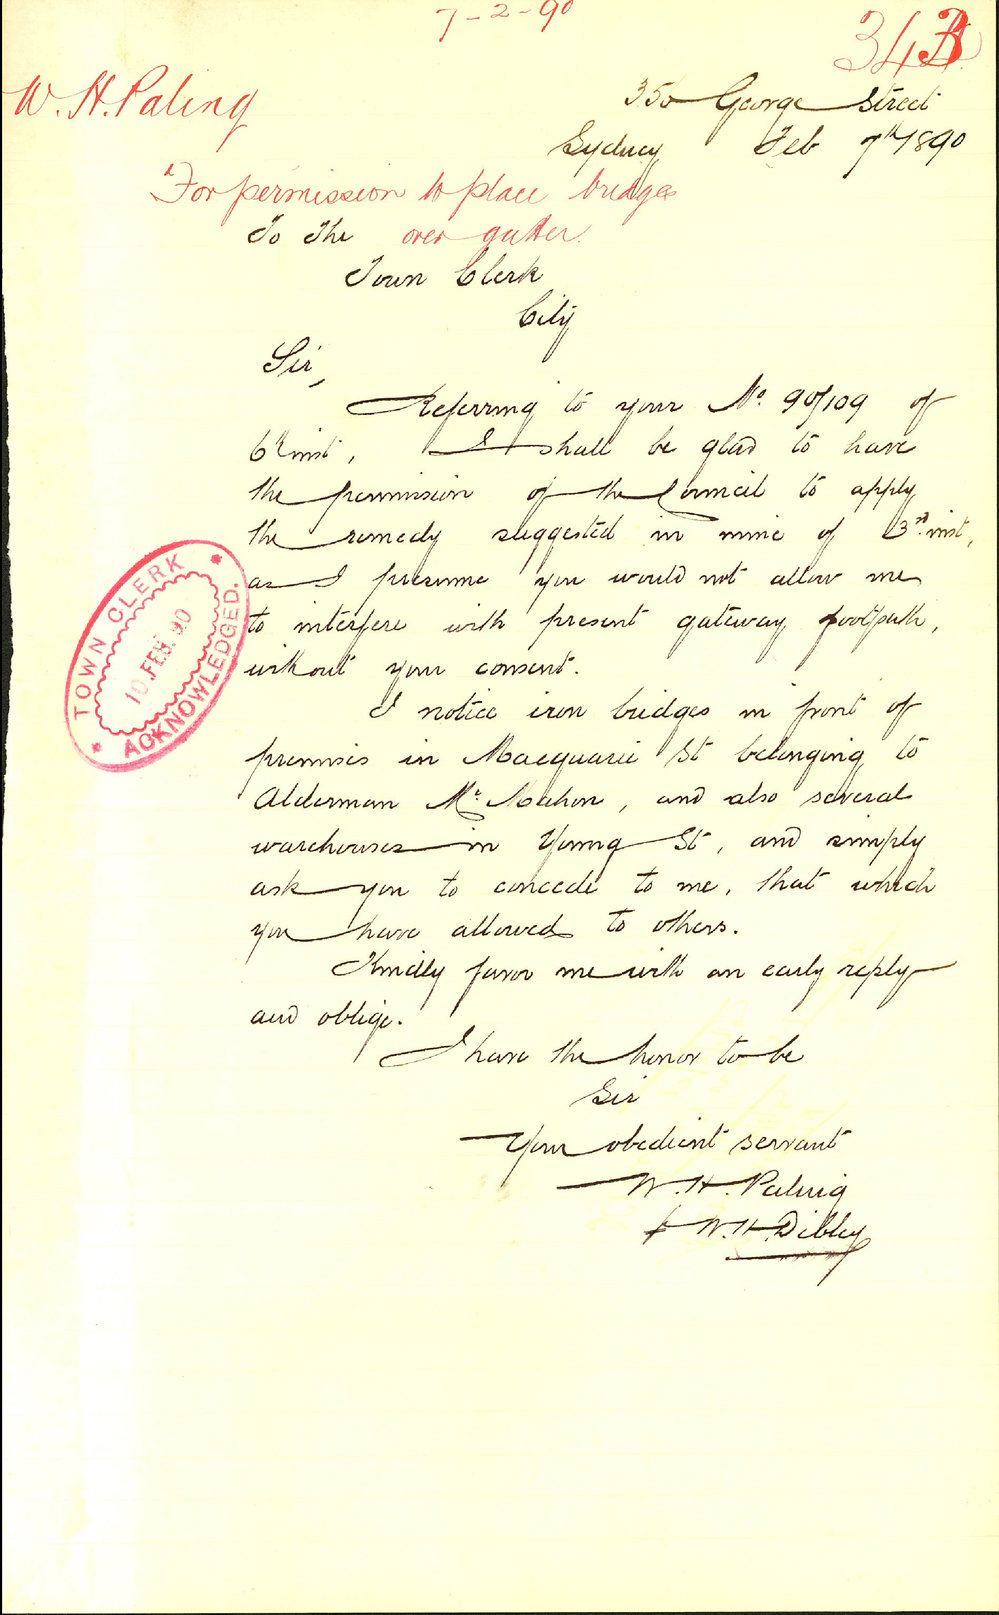 7-2-90
343
W. H. Paling
350 George Street
Sydney Feb 7th 1890
For permission to place bridges
over gutter.
To The
Town Clerk
City
Sir,
Referring to your No. 90/109 of
6th inst, I shall be glad to have
the permission of the Council to apply
the remedy suggested in mine of 3rd inst,
as I presume you would not allow me
to interfere with present gateway footpath,
without your consent.
I notice iron bridges in front of
premises in Macquarie St belonging to
Alderman Mc.Mahon, and also several
warehouses in Young St, and simply
ask you to concede to me, that which
you have allowed to others.
Kindly favor me with an early reply
and oblige.
I have the honor to be
Sir
Your obedient servant
W. H. Paling
W. H. Dibley
TOWN CLERK
10. FEB. 90
ACKNOWLEDGED.